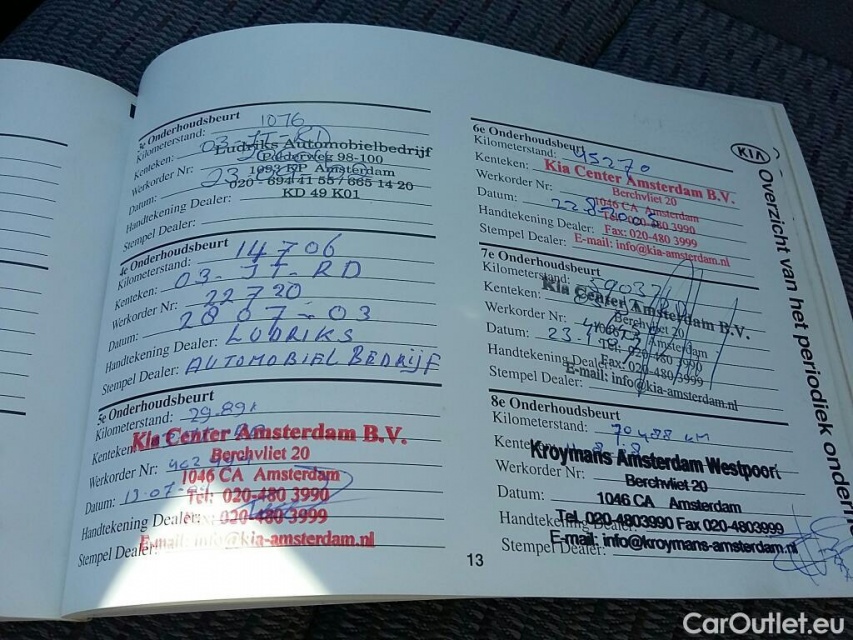 3e Onderhoudsbeurt
1076
Kilometerstand:
Kenteken: 03-JT-RD
Ludriks Automobielbedrijf
Polderweg 98-100
Werkorder Nr:
1093 KP Amsterdam
Datum:
020 - 694 41 55 / 665 14 20
Handtekening Dealer:
KD 49 K01
Stempel Dealer:
4e Onderhoudsbeurt
Kilometerstand: 14706
Kenteken: 03-JT-RD
Werkorder Nr: 22720
Datum: 28 07-03
Handtekening Dealer: LUDRIKS
Stempel Dealer: AUTOMOBIELBEDRIJF
5e Onderhoudsbeurt
Kilometerstand: 29.891
Kenteken:
Kia Center Amsterdam B.V.
Berchvliet 20
Werkorder Nr:
1046 CA Amsterdam
Datum: 13-07-
Tel: 020-480 3990
Handtekening Dealer:
Fax: 020-480 3999
Stempel Dealer:
E-mail: info@kia-amsterdam.nl
13
6e Onderhoudsbeurt
Kilometerstand: 45270
Kenteken:
Kia Center Amsterdam B.V.
Werkorder Nr:
Berchvliet 20
Datum:
1046 CA Amsterdam
Tel: 020-480 3990
Handtekening Dealer:
Fax: 020-480 3999
Stempel Dealer:
E-mail: info@kia-amsterdam.nl
7e Onderhoudsbeurt
Kilometerstand:
Kenteken:
Kia Center Amsterdam B.V.
Werkorder Nr:
Berchvliet 20
Datum:
Amsterdam
020-480 3990
Handtekening Dealer:
Fax: 020-480 3999
Stempel Dealer:
E-mail: info@kia-amsterdam.nl
8e Onderhoudsbeurt
Kilometerstand: 70488 KM
Kenteken:
Kroymans Amsterdam Westpoort
Werkorder Nr:
Berchvliet 20
Datum:
1046 CA Amsterdam
Handtekening Dealer:
Tel. 020-4803990 Fax 020-4803999
Stempel Dealer:
E-mail: info@kroymans-amsterdam.nl
KIA Overzicht van het periodiek
CarOutlet.eu